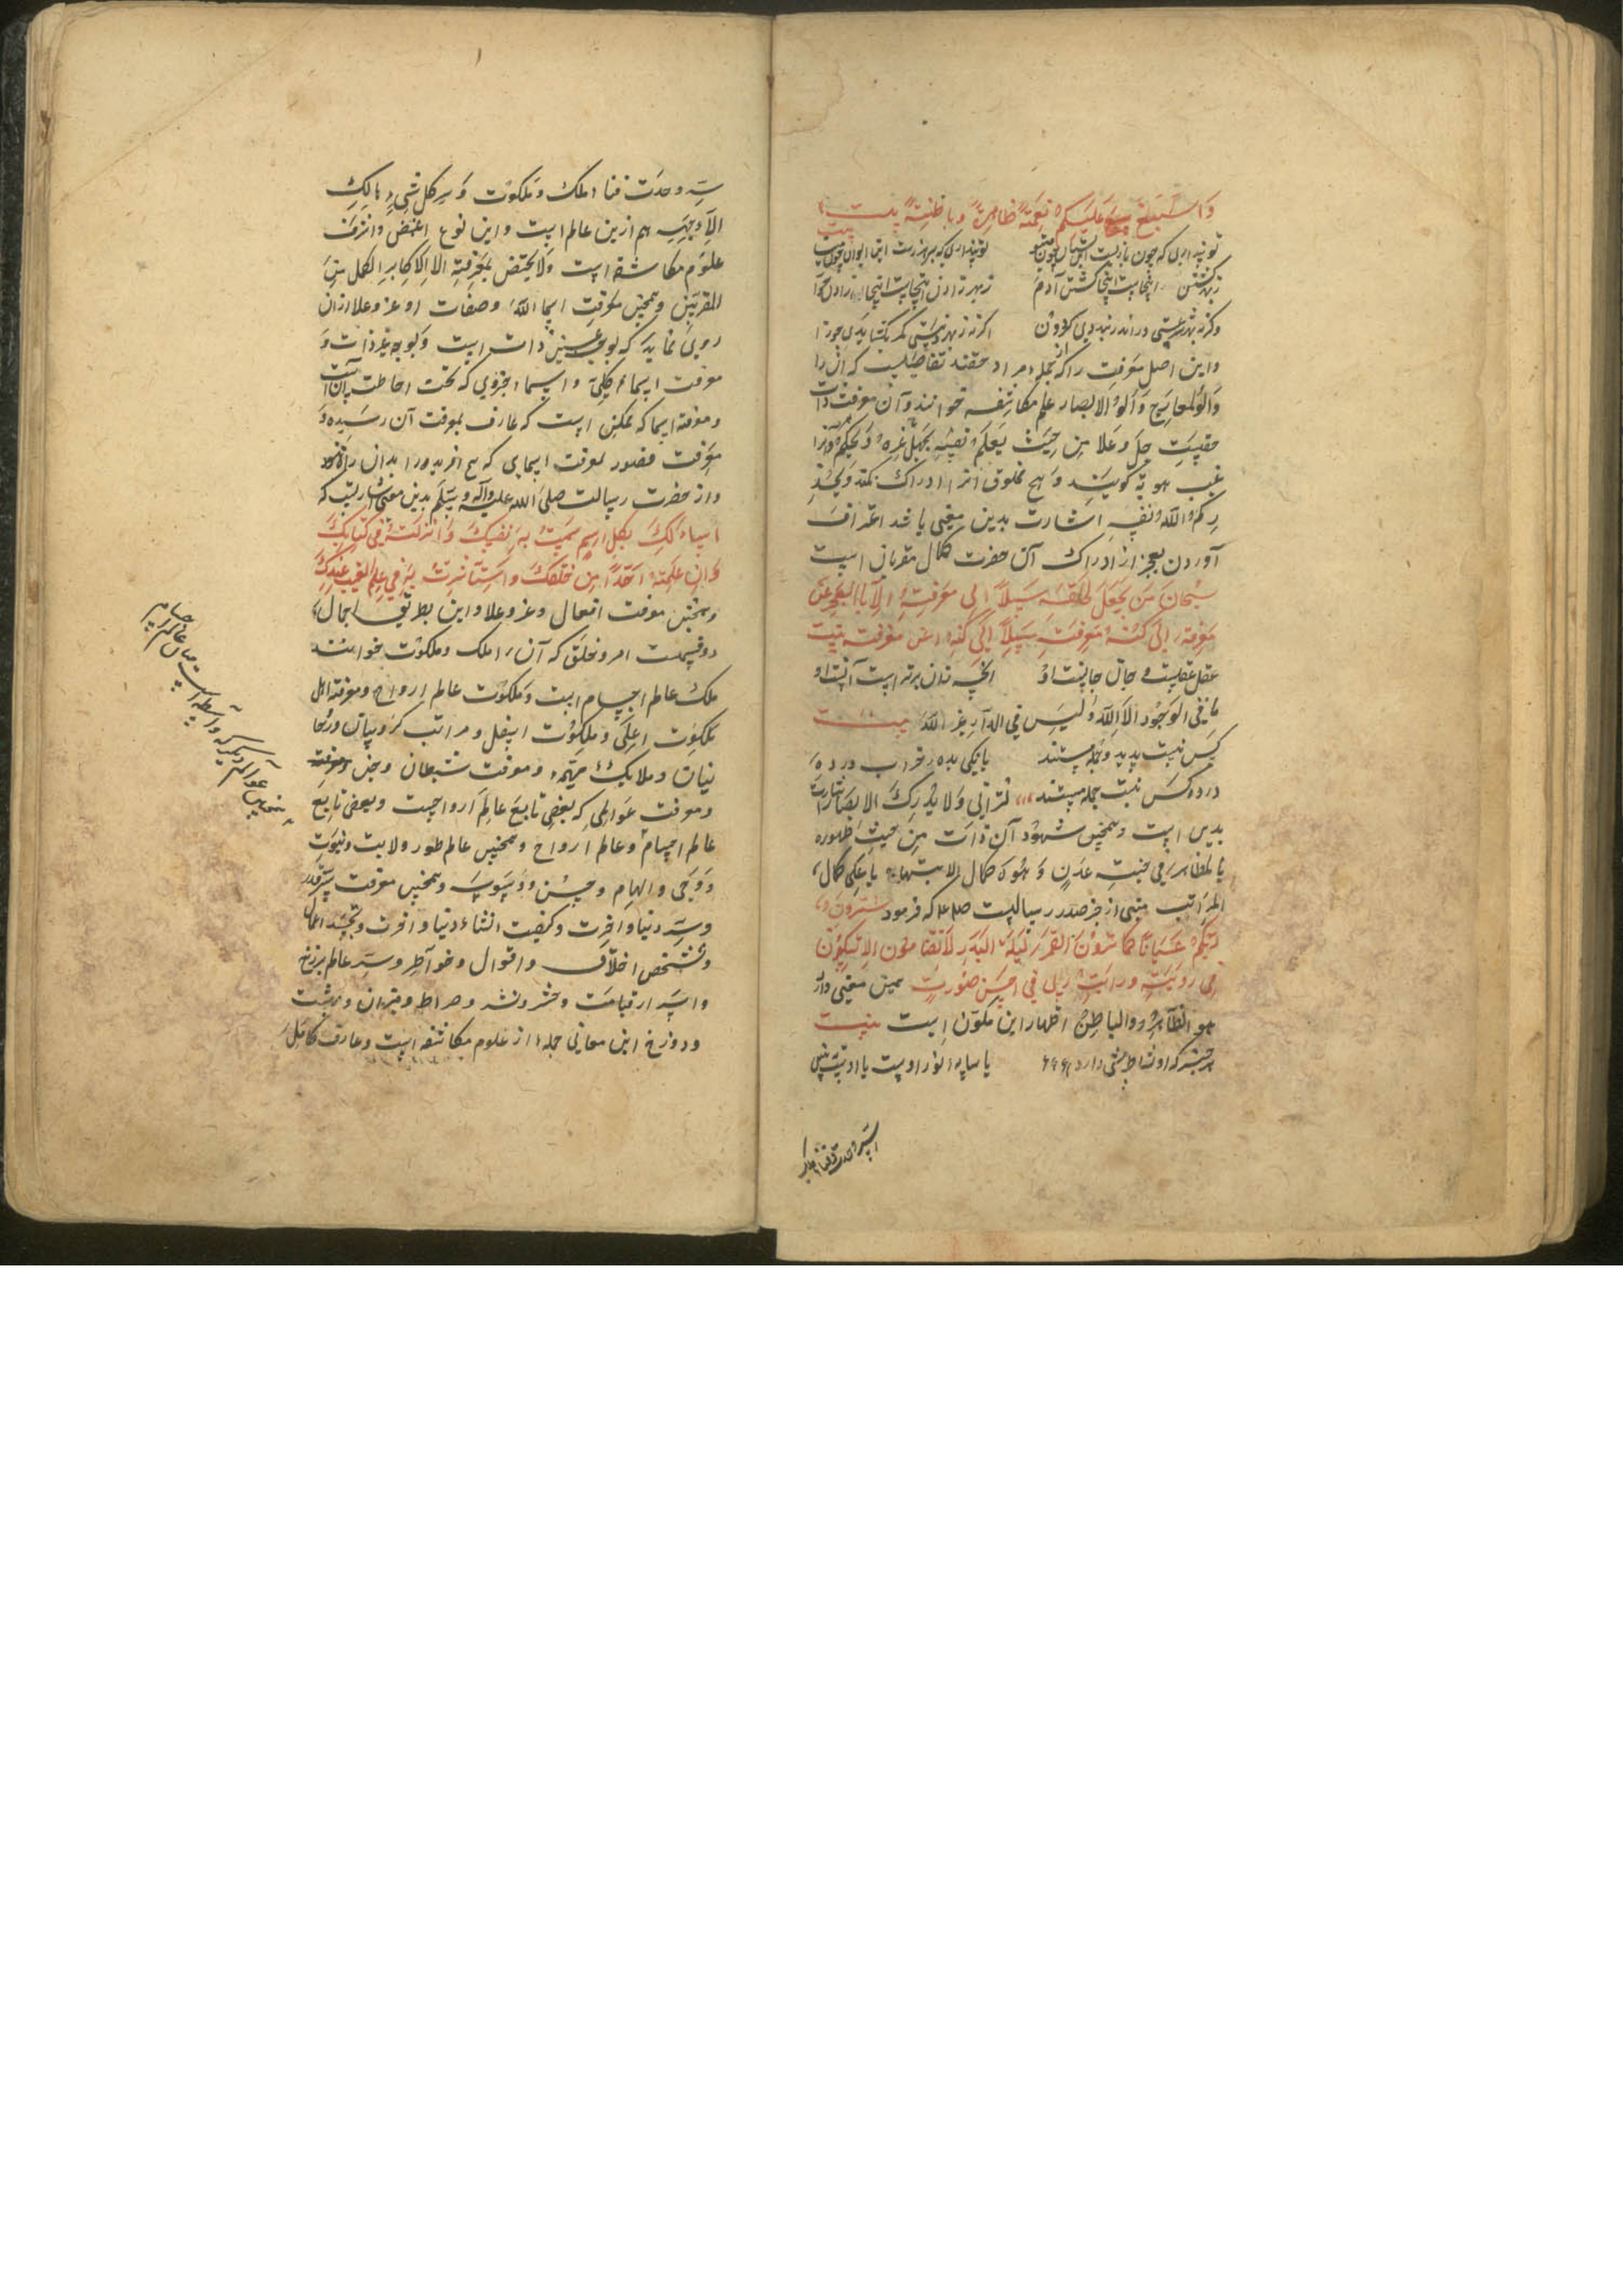 وَاسْبَغَ عَلَیْکُمْ نِعَمَهُ ظَاهِرَةً وَبَاطِنَةً بیت
تو پنداری که چون
زبهر کشتن اینجاست اینجا کشتن آدم زبهر زادن اینجاست اینجا زادن حوا
وکرنه بهر در اندر نبندیدی کردون اکرنه زبهر کمر نکشایدی جوزا
واین اصل معرفت را که مجمله مراد تفاصیلیست که آن را
وَاُولُو الابصار علم مکاشفه خوانند و آن معرفت ذات
حقیست جل وعلا مِن حیث یَعلَمُ نفسَه یَجهَل غیره وَ
غیب هویه کویند و هیچ مخلوق انرا ادراک نکند وَیُحَذِّ
رکم الله نفسه اشارت بدین معنی باشد اعتراف
آوردن بعجز از ادراک آن حضرت کمال مقربان است
سُبحان مَن یَجعَل لخلقه سبیلاً الی معرفته اِلّا بالعجز عن
معرفته الی کنه معرفته سبیلاً الی کنه معرفته بیت
عقل عقلست و جان جانست او انچه زان برتر است آنست او
ما فی الوجود الا الله ولیس فی الدار غیر الله بیت
کس نیست پدید و جمله هستند با نیکی بده خراب در ده
در ده کس نیست جمله مستند لن ترانی وَلا یُدرِکُ الابصار اشارت
بدین است وهمچنین شهود آن ذات مِن حیث ظهوره
بالمظاهر فی جنت عدن وَ هُوَ کمال الابتهاج با علی کمال
المراتب منبی از خبر صدر رسالیست صلعم که فرمود سترون
ربکم عیانا کما ترون القمر لیلة البدر لا تضامون الا تشکون
فی رویته ورایت ربی فی احسن صورت همین معنی دارد
هو الظاهر والباطن اظهار این مکون است بیت
هر چیز که او نشاط هستی دارد یا سایه نور اوست یا اوست ببین
سرّ وحدت فناء ملک
سرّ وحدت فناء ملک و ملکوت وَ سر کل شیءٍ هالک
اِلّا وجهه هم ازین عالم است واین نوع اغمض واشرف
علوم مکاشفه است وَلا یختص بمعرفته الا الاکابر الکمل من
المقربین وهمچنین معرفت اسماء الله وصفات او عز وعلا ازان
روی نماید که بوجهی عین ذات است وبوجهی غیر ذات وَ
معرفت اسماء کلی و اسماء جزوی که تحت احاطت آن است
ومعرفة اسما که ممکن است که عارف بمعرفت آن رسیده وَ
معرفت قصور معرفت اسمایی که هیچ افریده را بدان راه نبود
واز حضرت رسالت صلی الله علیه وآله وسلم بدین معنی اشارتست که
اسالک بکل اسم سمیت به نفسک وَ انزلته فی کتابک
وَ ان علمته احداً من خلقک واستاثرت به فی علم الغیب عندک
وهمچنین معرفت افعال وعز وعلا واین بطریق اجمال
دو قسمست امر وخلق که آن را ملک وملکوت خوانند
ملک عالم اجسام است وملکوت عالم ارواح ومعرفة اهل
ملکوت اعلی وملکوت اسفل ومراتب کروبیان وروحا
نیان وملایک مهیمه ومعرفت شیطان وجن ومعرفته
ومعرفت عوالمی که بعضی تابع عالم ارواحست وبعضی تابع
عالم اجسام وعالم ارواح وهمچنین عالم طور ولایت ونبوت
ووحی والهام وحسن ووسوسه وهمچنین معرفت سر قدر
وسر دنیا واخرت وکیفیت انشاء دنیا واخرت وتجسد اعمال
وتشخص اخلاق واقوال وخواطر وسر عالم برزخ
واسرار قیامت وحشر ونشر وصراط ومیزان وبهشت
ودوزخ این معانی جمله از علوم مکاشفه است وعارف کامل